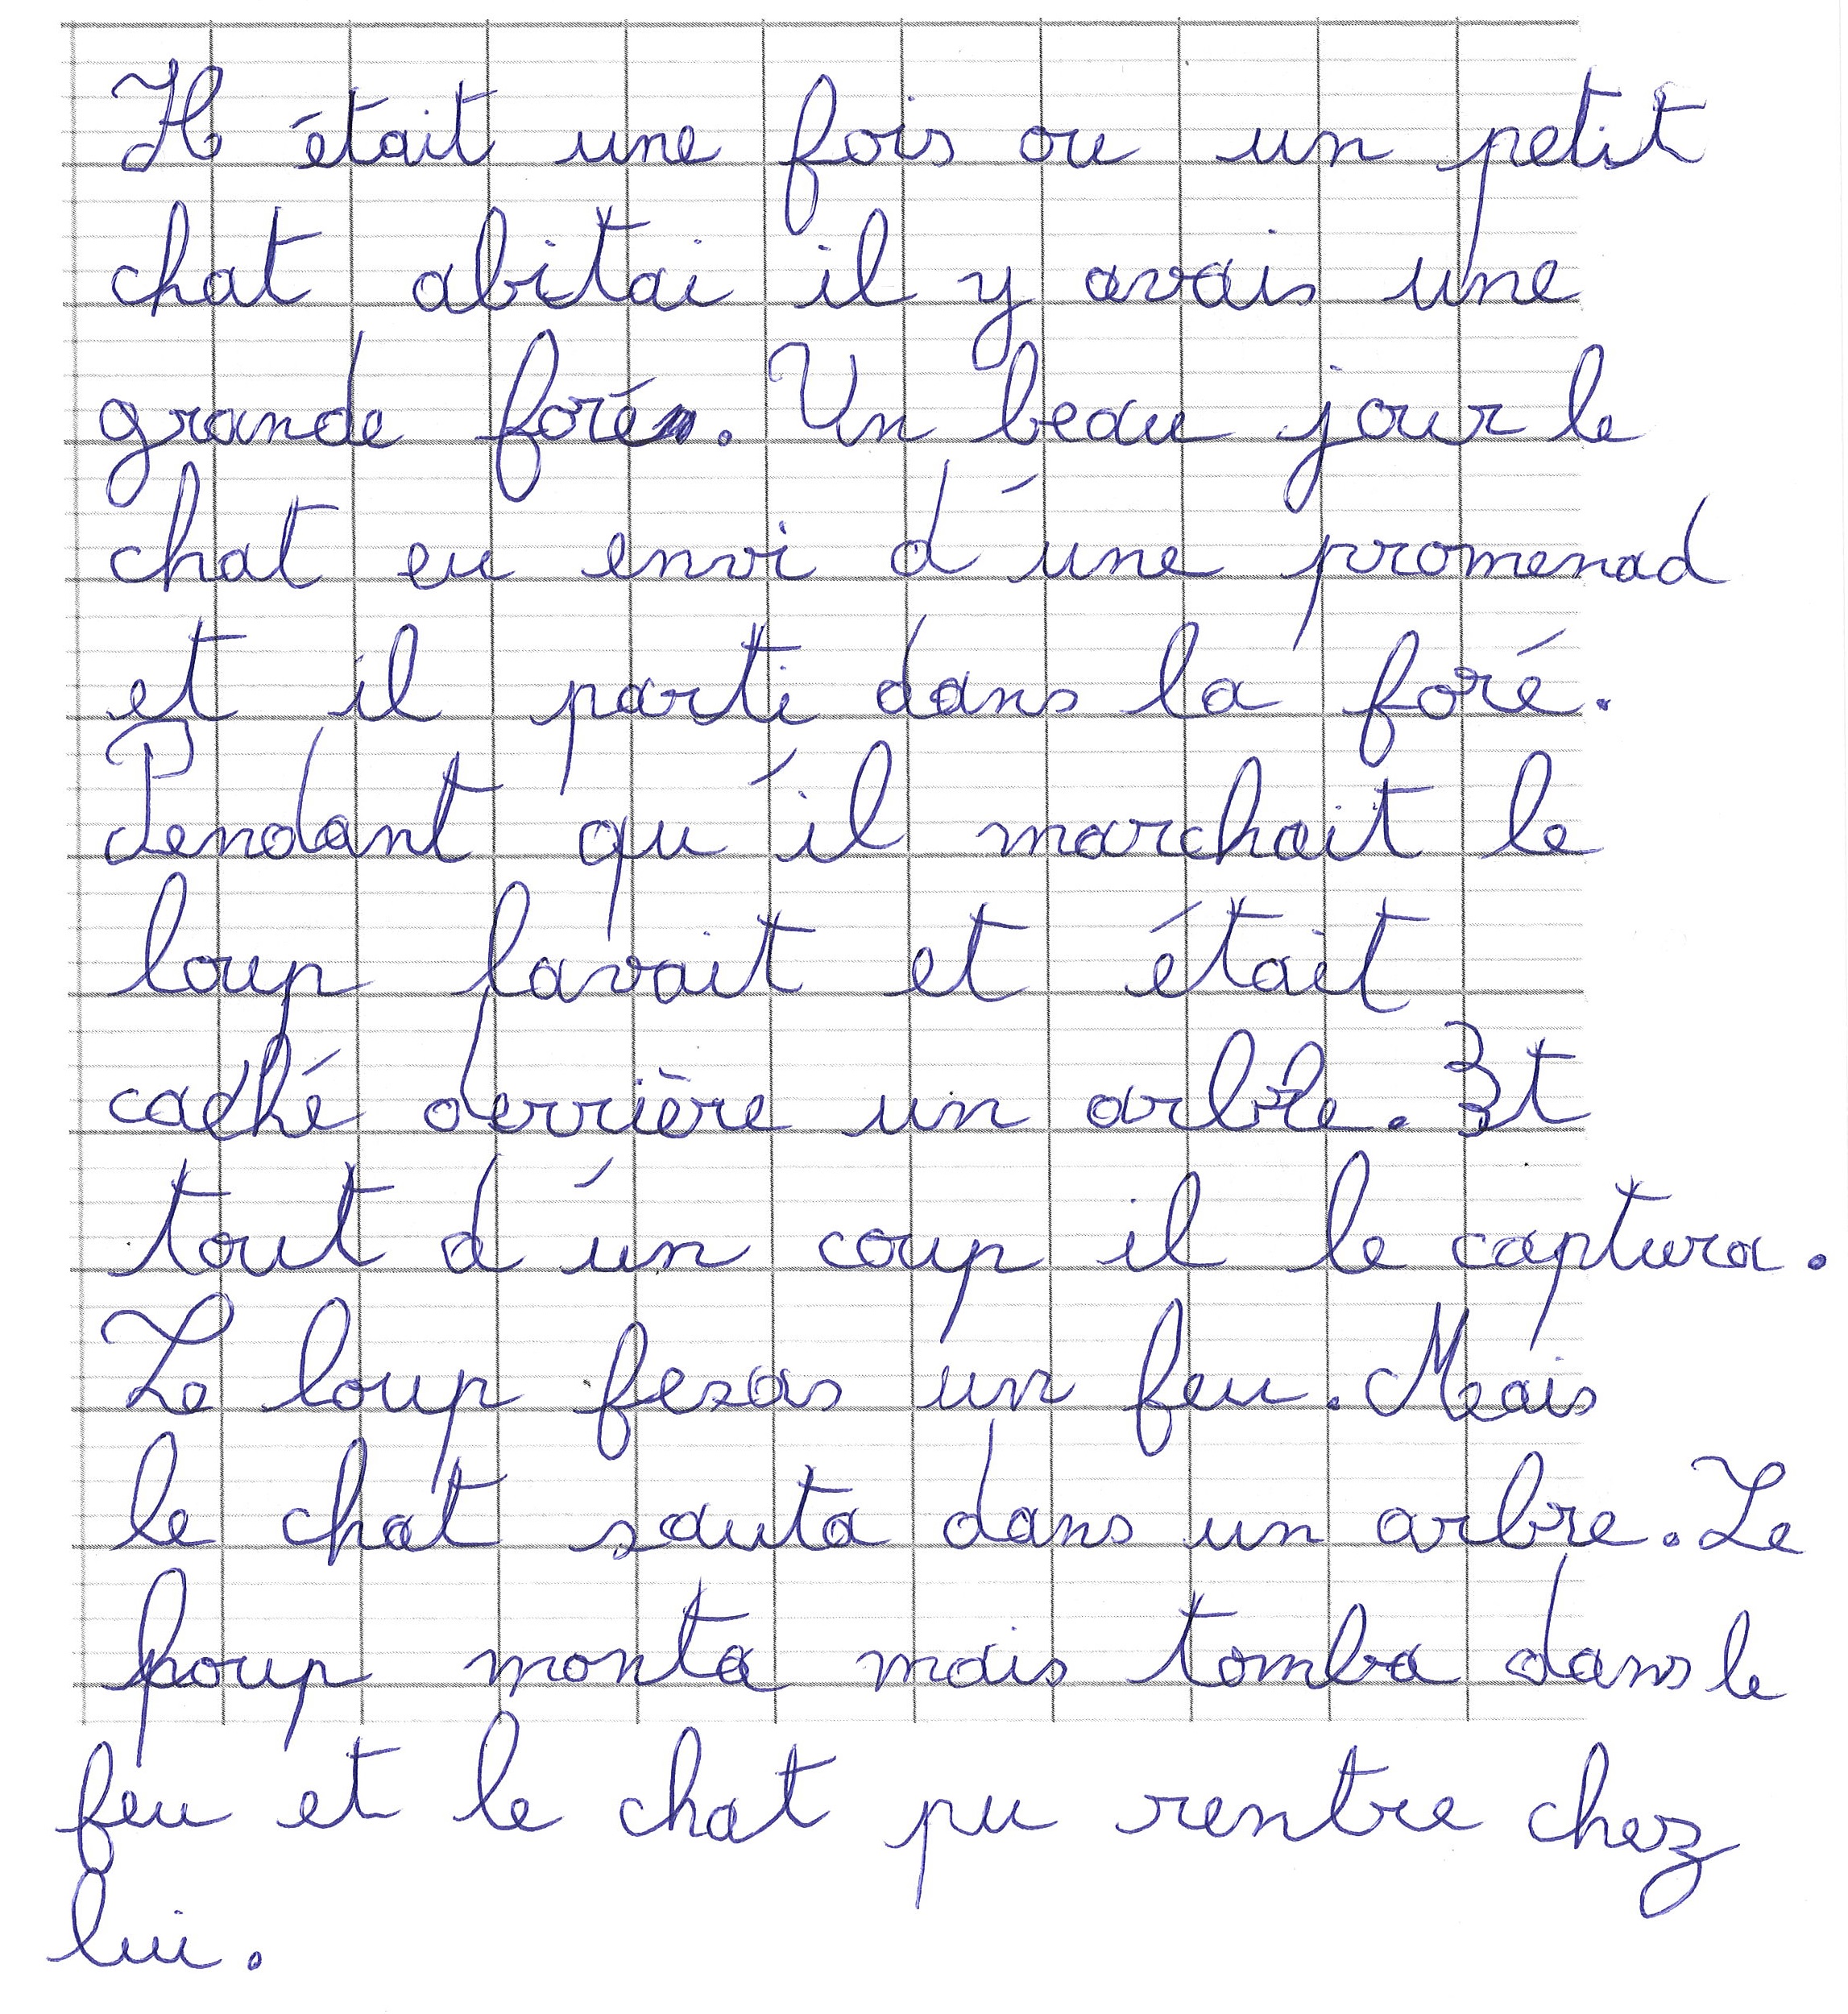 Il était une fois ou un petit
chat abitai il y avais une
grande foré. Un beau jour le
chat eu envi d'une promenad
et il parti dans la foré.
Pendant qu'il marchait le
loup lavait et était
caché derrière un arbre. Et
tout d'un coup il le captura.
Le loup fesas un feu. Mais
le chat sauta dans un arbre. Le
poup monta mais tomba dans le
feu et le chat pu rentre chez
lui.